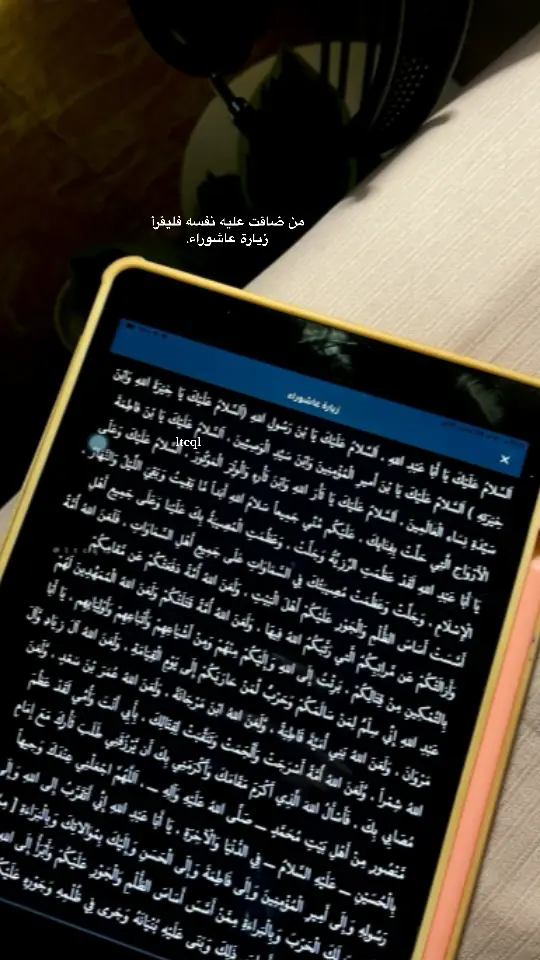 من ضاقت عليه نفسه فليقرأ
زيارة عاشوراء.
زيارة عاشوراء
ltcql
السَّلَامُ عَلَيْكَ يَا أَبَا عَبْدِ اللهِ ، السَّلَامُ عَلَيْكَ يَا بْنَ رَسُولِ اللهِ (السَّلَامُ عَلَيْكَ يَا خِيَرَةَ اللهِ وَابْنَ
خِيَرَتِهِ ) السَّلَامُ عَلَيْكَ يَا بْنَ أَمِيرِ الْمُؤْمِنِينَ وَابْنَ سَيِّدِ الْوَصِيِّينَ ، السَّلَامُ عَلَيْكَ يَا بْنَ فَاطِمَةَ
سَيِّدَةِ نِسَاءِ الْعَالَمِينَ ، السَّلَامُ عَلَيْكَ يَا ثَارَ اللهِ وَابْنَ ثَارِهِ وَالْوِتْرَ الْمَوْتُورَ ، السَّلَامُ عَلَيْكَ وَعَلَى
الْأَرْوَاحِ الَّتِي حَلَّتْ بِفِنَائِكَ ، عَلَيْكُمْ مِنِّي جَمِيعاً سَلَامُ اللهِ أَبَداً مَا بَقِيتُ وَبَقِيَ اللَّيْلُ وَالنَّهَارُ ،
يَا أَبَا عَبْدِ اللهِ لَقَدْ عَظُمَتِ الرَّزِيَّةُ وَجَلَّتْ ، وَعَظُمَتِ الْمُصِيبَةُ بِكَ عَلَيْنَا وَعَلَى جَمِيعِ أَهْلِ
الْإِسْلَامِ ، وَجَلَّتْ وَعَظُمَتْ مُصِيبَتُكَ فِي السَّمَاوَاتِ عَلَى جَمِيعِ أَهْلِ السَّمَاوَاتِ ، فَلَعَنَ اللهُ أُمَّةً
أَسَّسَتْ أَسَاسَ الظُّلْمِ وَالْجَوْرِ عَلَيْكُمْ أَهْلَ الْبَيْتِ ، وَلَعَنَ اللهُ أُمَّةً دَفَعَتْكُمْ عَنْ مَقَامِكُمْ
وَأَزَالَتْكُمْ عَنْ مَرَاتِبِكُمُ الَّتِي رَتَّبَكُمُ اللهُ فِيهَا ، وَلَعَنَ اللهُ أُمَّةً قَتَلَتْكُمْ وَلَعَنَ اللهُ الْمُمَهِّدِينَ لَهُمْ
بِالتَّمْكِينِ مِنْ قِتَالِكُمْ ، بَرِئْتُ إِلَى اللهِ وَإِلَيْكُمْ مِنْهُمْ وَمِنْ أَشْيَاعِهِمْ وَأَتْبَاعِهِمْ وَأَوْلِيَائِهِمْ ، يَا أَبَا
عَبْدِ اللهِ إِنِّي سِلْمٌ لِمَنْ سَالَمَكُمْ وَحَرْبٌ لِمَنْ حَارَبَكُمْ إِلَى يَوْمِ الْقِيَامَةِ ، وَلَعَنَ اللهُ آلَ زِيَادٍ وَآلَ
مَرْوَانَ ، وَلَعَنَ اللهُ بَنِي أُمَيَّةَ قَاطِبَةً ، وَلَعَنَ اللهُ ابْنَ مَرْجَانَةَ ، وَلَعَنَ اللهُ عُمَرَ بْنَ سَعْدٍ ، وَلَعَنَ
اللهُ شِمْراً ، وَلَعَنَ اللهُ أُمَّةً أَسْرَجَتْ وَأَلْجَمَتْ وَتَنَقَّبَتْ لِقِتَالِكَ ، بِأَبِي أَنْتَ وَأُمِّي لَقَدْ عَظُمَ
مُصَابِي بِكَ ، فَأَسْأَلُ اللهَ الَّذِي أَكْرَمَ مَقَامَكَ وَأَكْرَمَنِي بِكَ أَنْ يَرْزُقَنِي طَلَبَ ثَارِكَ مَعَ إِمَامٍ
مَنْصُورٍ مِنْ أَهْلِ بَيْتِ مُحَمَّدٍ — صَلَّى اللهُ عَلَيْهِ وَآلِهِ — ، اللَّهُمَّ اجْعَلْنِي عِنْدَكَ وَجِيهاً
بِالْحُسَيْنِ — عَلَيْهِ السَّلَامُ — فِي الدُّنْيَا وَالْآخِرَةِ ، يَا أَبَا عَبْدِ اللهِ إِنِّي أَتَقَرَّبُ إِلَى اللهِ وَإِلَى
رَسُولِهِ وَإِلَى أَمِيرِ الْمُؤْمِنِينَ وَإِلَى فَاطِمَةَ وَإِلَى الْحَسَنِ وَإِلَيْكَ بِمُوَالَاتِكَ وَبِالْبَرَاءَةِ
لَكَ الْحَرْبَ وَبِالْبَرَاءَةِ مِمَّنْ أَسَّسَ أَسَاسَ الظُّلْمِ وَالْجَوْرِ عَلَيْكُمْ وَأَبْرَأُ إِلَى اللهِ
ذَلِكَ وَبَنَى عَلَيْهِ بُنْيَانَهُ وَجَرَى فِي ظُلْمِهِ وَجَوْرِهِ